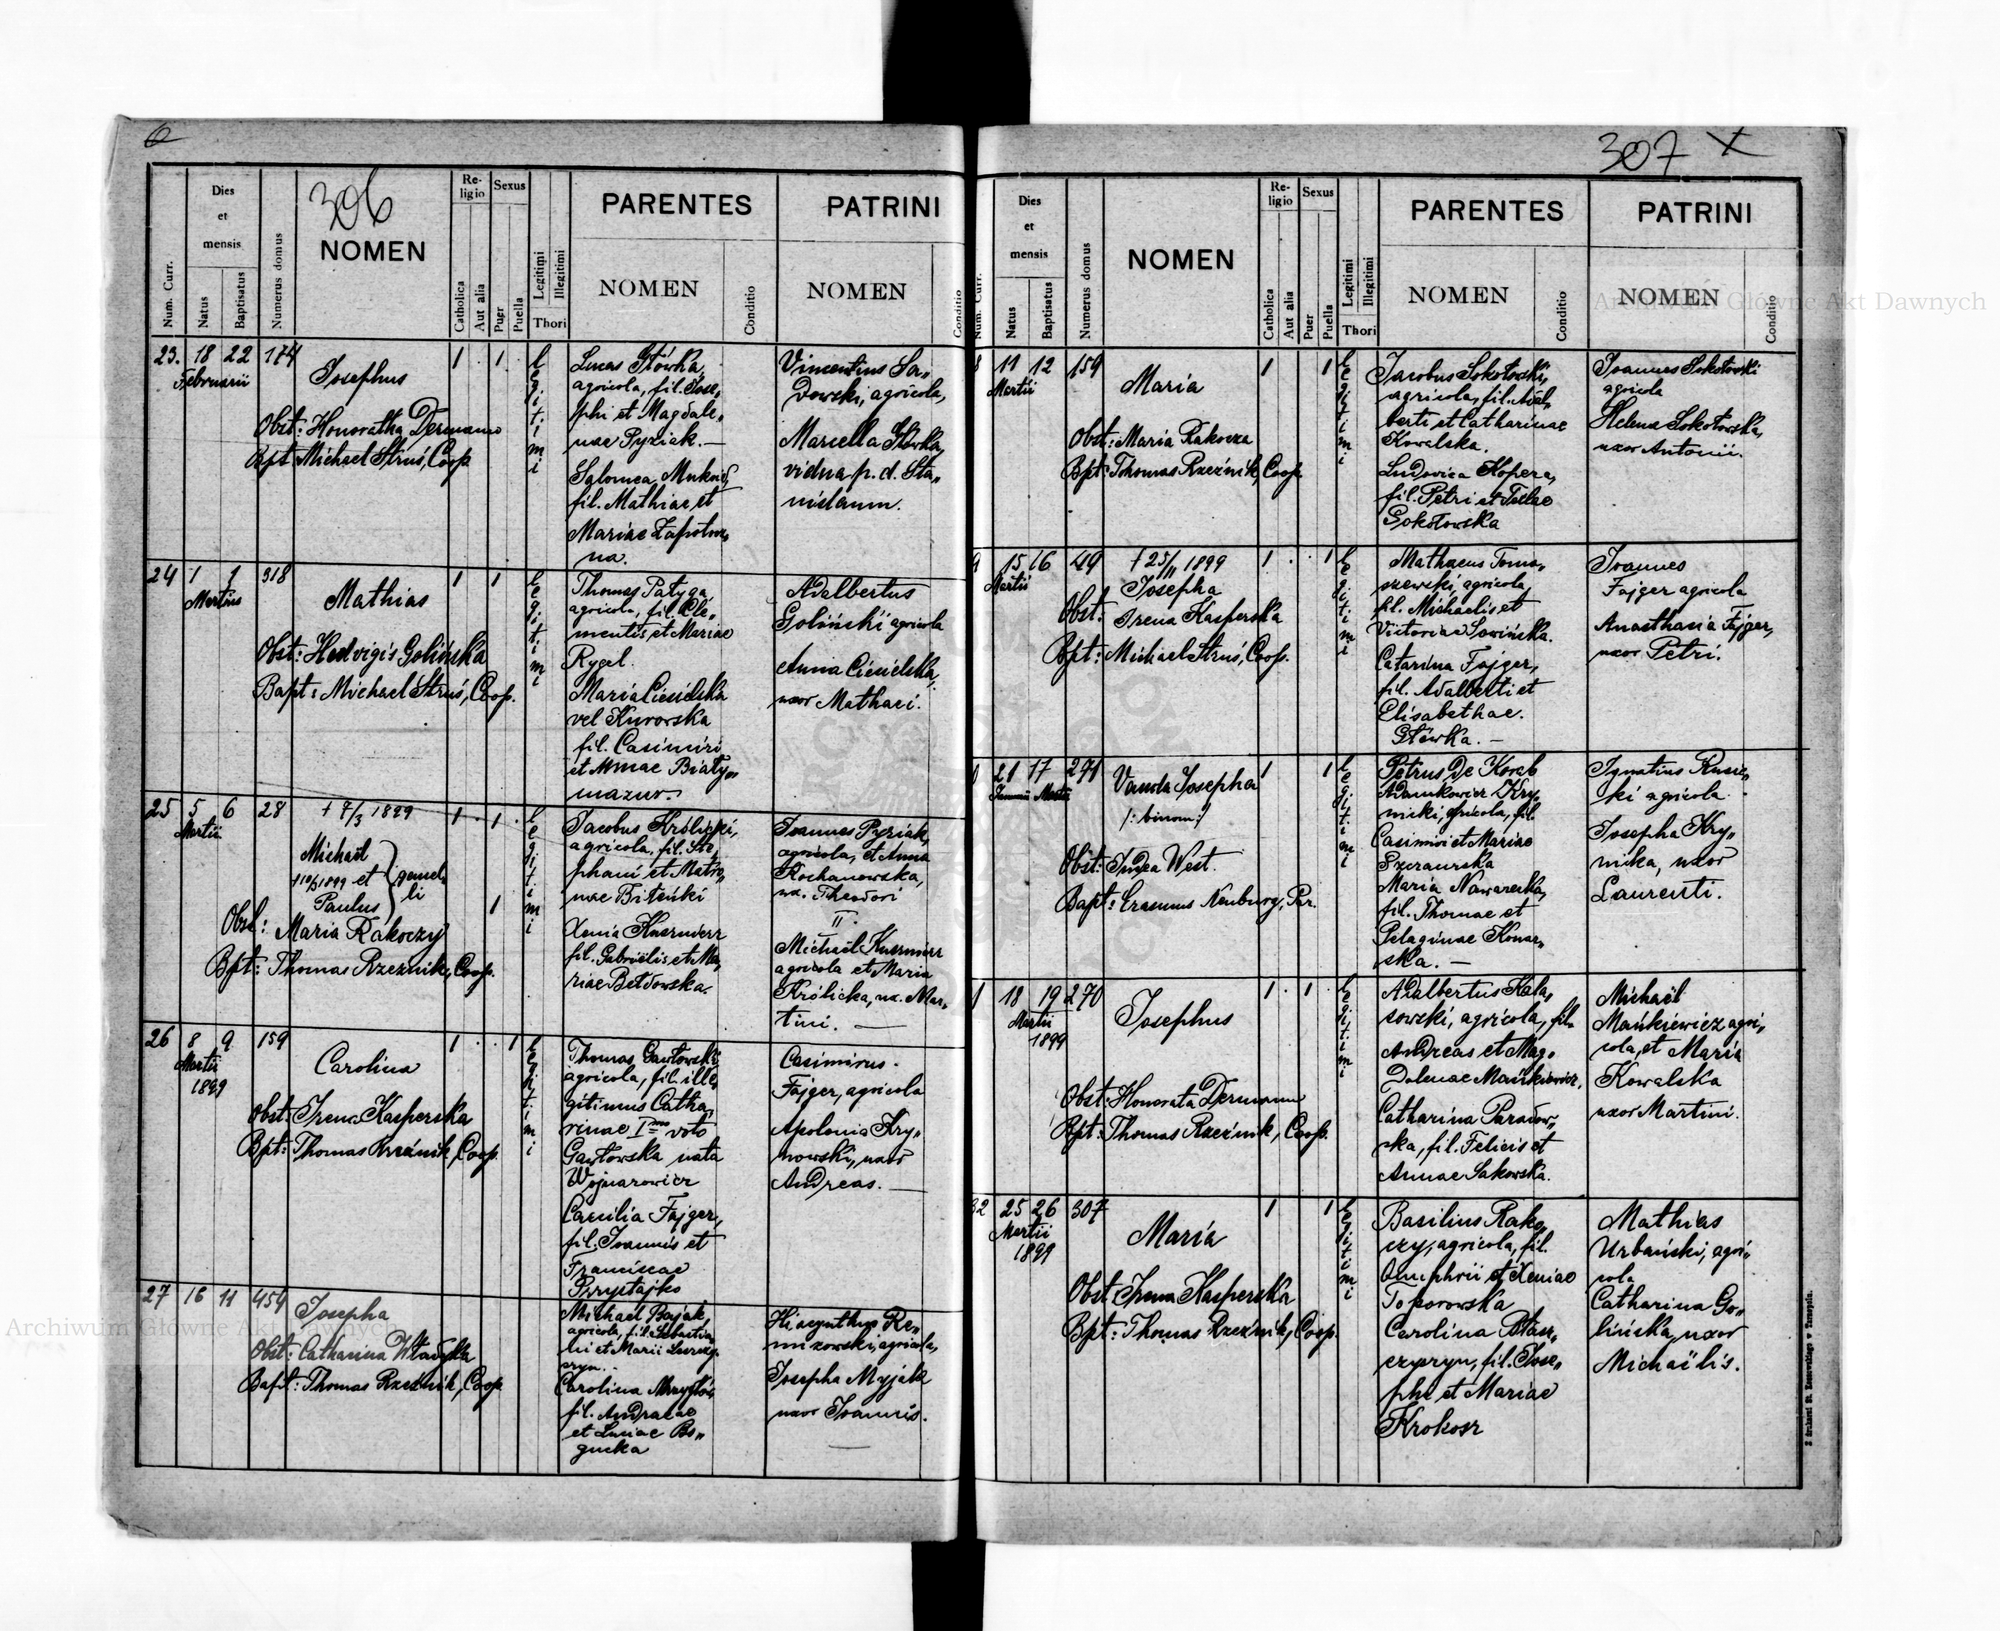 306
Num. Curr.
Dies
et
mensis
Natus
Baptisatus
Numerus domus
NOMEN
Re-
ligio
Catholica
Aut alia
Sexus
Puer
Puella
Legitimi
Illegitimi
Thori
PARENTES
NOMEN
Conditio
PATRINI
NOMEN
Conditio
23. 18 22 174
Februarii
Josephus
Obst: Honoratha Dermann
Bpt Michael Struś, Coop.
1 1
legitimi
Lucas Główka,
agricola, fil. Jose„
phi et Magdale„
nae Pyziak.—
Salomea
fil. Mathiae et
Mariae Zapotocz„
na.
Vincentius Sa„
dowski, agricola,
Marcella Główka,
vidua p. d. Sta„
nislaum.
24 1 1 318
Martius
Mathias
Obst: Hedvigis Golińska
Bapt: Michael Struś, Coop.
1 1
legitimi
Thomas Patyga,
agricola, fil. Cle„
mentis et Mariae
Rygel.
Maria Ciesielska
vel Kurorska
fil. Casimiri
et Annae Biały„
mazur.
Adalbertus
Goliński agricola
Anna Ciesielska,
uxor Mathaei.
25 5 6 28
Martii
+ 7/3 1899
Michaël
+10/3 1899 et gemel-
Paulus li
Obst:
Maria Rakoczy
Bpt: Thomas Rzeźnik, Coop.
1 1
1
legitimi
Jacobus Królicki,
agricola, fil. Ste„
phani et Matro„
nae Biteński
Xenia Kusznierz
fil. Gabriëlis et Ma„
riae Bełdowska.
Joannes Pyziak,
agricola, et Anna
Kochanowska,
ux. Theodori
II.
Michaël Kusznierz
agricola et Maria
Królicka, ux. Mar„
tini. —
26 8 9 159
Martii
1899
Carolina
Obst: Irena Kasperska
Bpt: Thomas Rzeźnik, Coop.
1 1
legitimi
Thomas Gawłowski,
agricola, fil. ille„
gitimus Catha„
rinae I mo voto
Gawłowska nata
Wojnarowicz
Caecilia Fajger,
fil. Joannis et
Franciscae
Przystajko
Casimirus
Fajger, agricola
Apolonia Kry„
nowski, uxor
Andreas. —
27 16 11 454
Josepha
Obst: Catharina Władyka
Bapt: Thomas Rzeźnik, Coop
Michael Bajak,
agricola, fil. Sebastia„
ni et Marii
Carolina
fil. Andreae
et Luciae Bo„
gucka
Hiacynthus Re„
mizowski, agricola,
Josepha Myjak
uxor Joannis.
307 X
Num. Curr.
Dies
et
mensis
Natus
Baptisatus
Numerus domus
NOMEN
Re-
ligio
Catholica
Aut alia
Sexus
Puer
Puella
Legitimi
Illegitimi
Thori
PARENTES
NOMEN
Conditio
PATRINI
NOMEN
Conditio
8 11 12 159
Martii
Maria
Obst: Maria Rakocza
Bpt: Thomas Rzeźnik, Coop.
1 1
legitimi
Jacobus Sokołowski,
agricola, fil. Adal„
berti et Catharinae
Kowalska.
Ludovica Kopera,
fil. Petri et Teclae
Sokołowska
Joannes Sokołowski
agricola
Helena Sokołowska,
uxor Antonii.
9 15 16 49
Martii
+ 25/11 1899
Josepha
Obst: Irena Kasperska
Bpt: Michael Struś, Coop.
1 1
legitimi
Mathaeus Toma„
szewski, agricola,
fil. Michaelis et
Victoriae Sowińska.
Catarina Fajger,
fil. Adalberti et
Elisabethae.
Główka. —
Joannes
Fajger agricola
Anasthasia Fajger,
uxor Petri.
0 21 17 291
Januarii Martii
Vanda Josepha
/: binom:/
Obst: West.
Bapt: Erasmus Neuburg, Par.
1 1
legitimi
Petrus De Korab
Adamkowicz Kry„
nicki, agricola, fil.
Casimiri et Mariae
Szczaurska
Maria Nawarecka,
fil. Thomae et
Pelaginae Konar„
ska. —
Ignatius Rusic„
ki agricola.
Josepha Kry„
nicka, uxor
Laurenti.
1 18 19 270
Martii
1899
Josephus
Obst: Honorata Dermann
Bpt: Thomas Rzeźnik, Coop.
1 1
legitimi
Adalbertus Kala„
sowski, agricola, fil.
Andreas et Mag„
dalenae Mańkiewicz,
Catharina Paradow„
ska, fil. Felicis et
Annae Sakowska.
Michaël
Mańkiewicz agri„
cola, et Maria
Kowalska
uxor Martini.
32 25 26 307
Martii
1899
Maria
Obst: Irena Kasperska
Bpt: Thomas Rzeźnik, Coop.
1 1
legitimi
Basilius Rako„
czy, agricola, fil.
Onuphrii et Xeniae
Toporowska
Carolina Błasz„
czyszyn, fil. Jose„
phi et Mariae
Krokosz
Mathias
Urbański, agri„
cola
Catharina Go„
lińska, uxor
Michaëlis.
Z drukarni St. Kossowskiego w Tarnopolu.
Archiwum Główne Akt Dawnych
Archiwum Główne Akt Dawnych